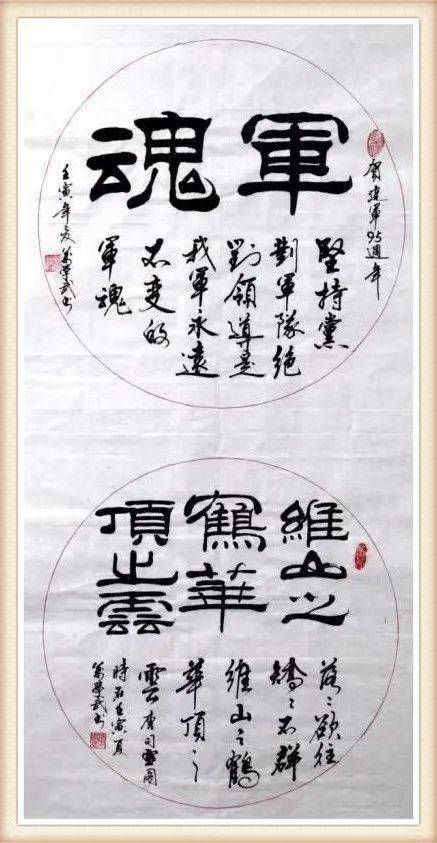 賀建軍95週年
軍魂
堅持黨
對軍隊絕
對領導是
我軍永遠
不變的
軍魂
壬寅年夏
維山之
鶴華
頂之雲
落〻欲往
矯〻不群
維山之鶴
華頂之
雲唐司空圖
時在壬寅夏